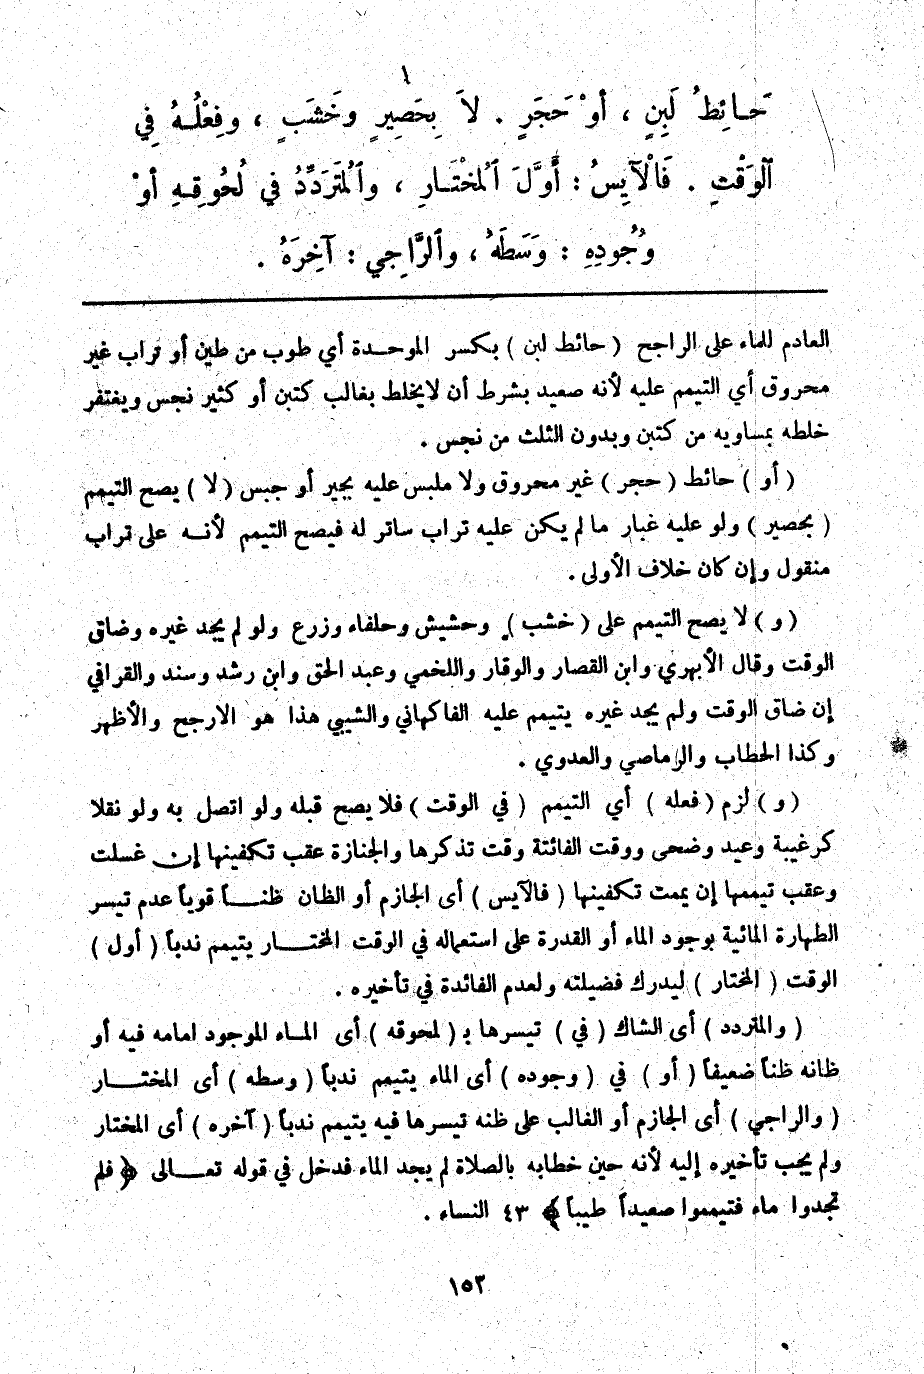 حَائِطُ لَبِنٍ ، أوْ حَجَرٍ . لاَ بِحَصِيرٍ وخَشَبٍ ، وفِعْلُهُ فِي
ٱلوَقْتِ . فَالْآيِسُ : أَوَّلَ ٱلمُخْتَارِ ، وٱلمُتَرَدِّدُ في لُحُوقِهِ أوْ
وُجُودِهِ : وَسَطَهُ ، وٱلرَّاجِي : آخِرَهُ .
العادم للماء على الراجح ( حائط لبن ) بكسر الموحدة أي طوب من طين أو تراب غير
محروق أي التيمم عليه لأنه صعيد بشرط أن لايخلط بغالب كتبن أو كثير نجس ويغتفر
خلطه بمساويه من كتبن وبدون الثلث من نجس .
( أو ) حائط ( حجر ) غير محروق ولا ملبس عليه بجير أو جبس ( لا ) يصح التيمم
( بحصير ) ولو عليه غبار ما لم يكن عليه تراب ساتر له فيصح التيمم لأنه على تراب
منقول وإن كان خلاف الأولى .
( و ) لا يصح التيمم على ( خشب ) وحشيش وحلفاء وزرع ولو لم يجد غيره وضاق
الوقت وقال الأبهري وابن القصار والوقار واللخمي وعبد الحق وابن رشد وسند والقرافي
إن ضاق الوقت ولم يجد غيره يتيمم عليه الفاكهاني والشيبي هذا هو الارجح والأظهر
وكذا الحطاب والرماصي والعدوي .
( و ) لزم ( فعله ) أي التيمم ( في الوقت ) فلا يصح قبله ولو اتصل به ولو نقلا
كرغيبة وعيد وضحى ووقت الفائتة وقت تذكرها والجنازة عقب تكفينها إن غسلت
وعقب تيممها إن يممت تكفينها ( فالآيس ) أى الجازم أو الظان ظناً قوياً عدم تيسر
الطهارة المائية بوجود الماء أو القدرة على استعماله في الوقت المختار يتيمم ندباً ( أول )
الوقت ( المختار ) ليدرك فضيلته ولعدم الفائدة في تأخيره .
( والمتردد ) أى الشاك ( في ) تيسرها بـ ( لحوقه ) أى الماء الموجود امامه فيه أو
ظانه ظناً ضعيفاً ( أو ) في ( وجوده ) أى الماء يتيمم ندباً ( وسطه ) أى المختار
( والراجي ) أى الجازم أو الغالب على ظنه تيسرها فيه يتيمم ندباً ( آخره ) أى المختار
ولم يجب تأخيره إليه لأنه حين خطابه بالصلاة لم يجد الماء فدخل في قوله تعالى ﴿ فلم
تجدوا ماء فتيمموا صعيداً طيباً ﴾ ٤٣ النساء .
١٥٣